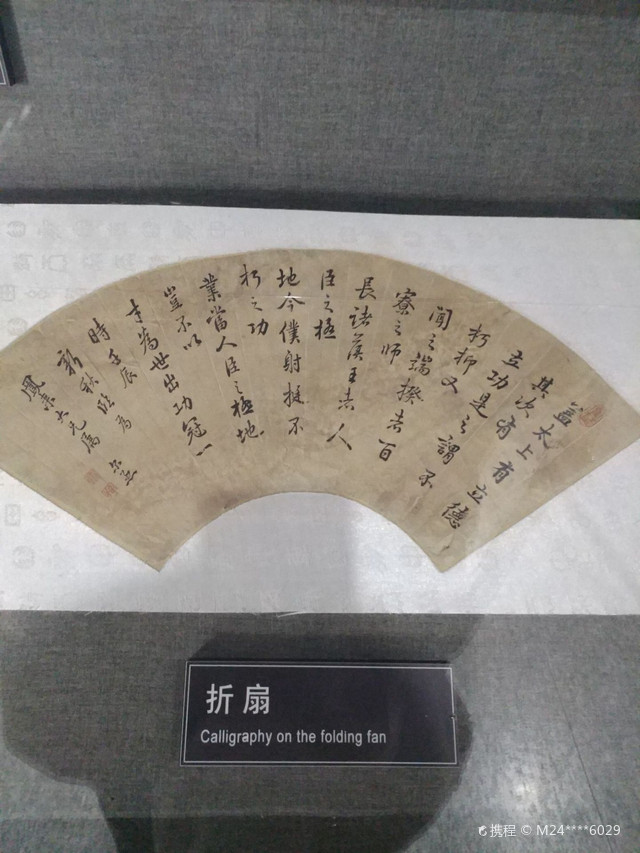 葢太上有立德
其次有
立功是之謂不
朽抑又
聞之端揆者百
寮之師
長諸侯王者人
臣之極
地今僕射挺不
朽之功
業當人臣之極地
豈不以
才為世出功冠一
時壬辰
新秋臨為
大兄屬
折扇
Calligraphy on the folding fan
携程 © M24****6029